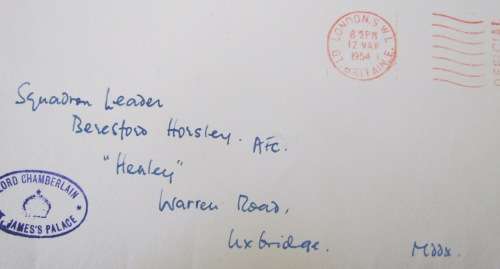 LONDON.S.W.1.
8 15 PM
12 MAR
1954
Squadron Leader
Beresford Horsley. AFC.
"Henley"
Warren Road,
Uxbridge. Mddx.
LORD CHAMBERLAIN
JAMES'S PALACE